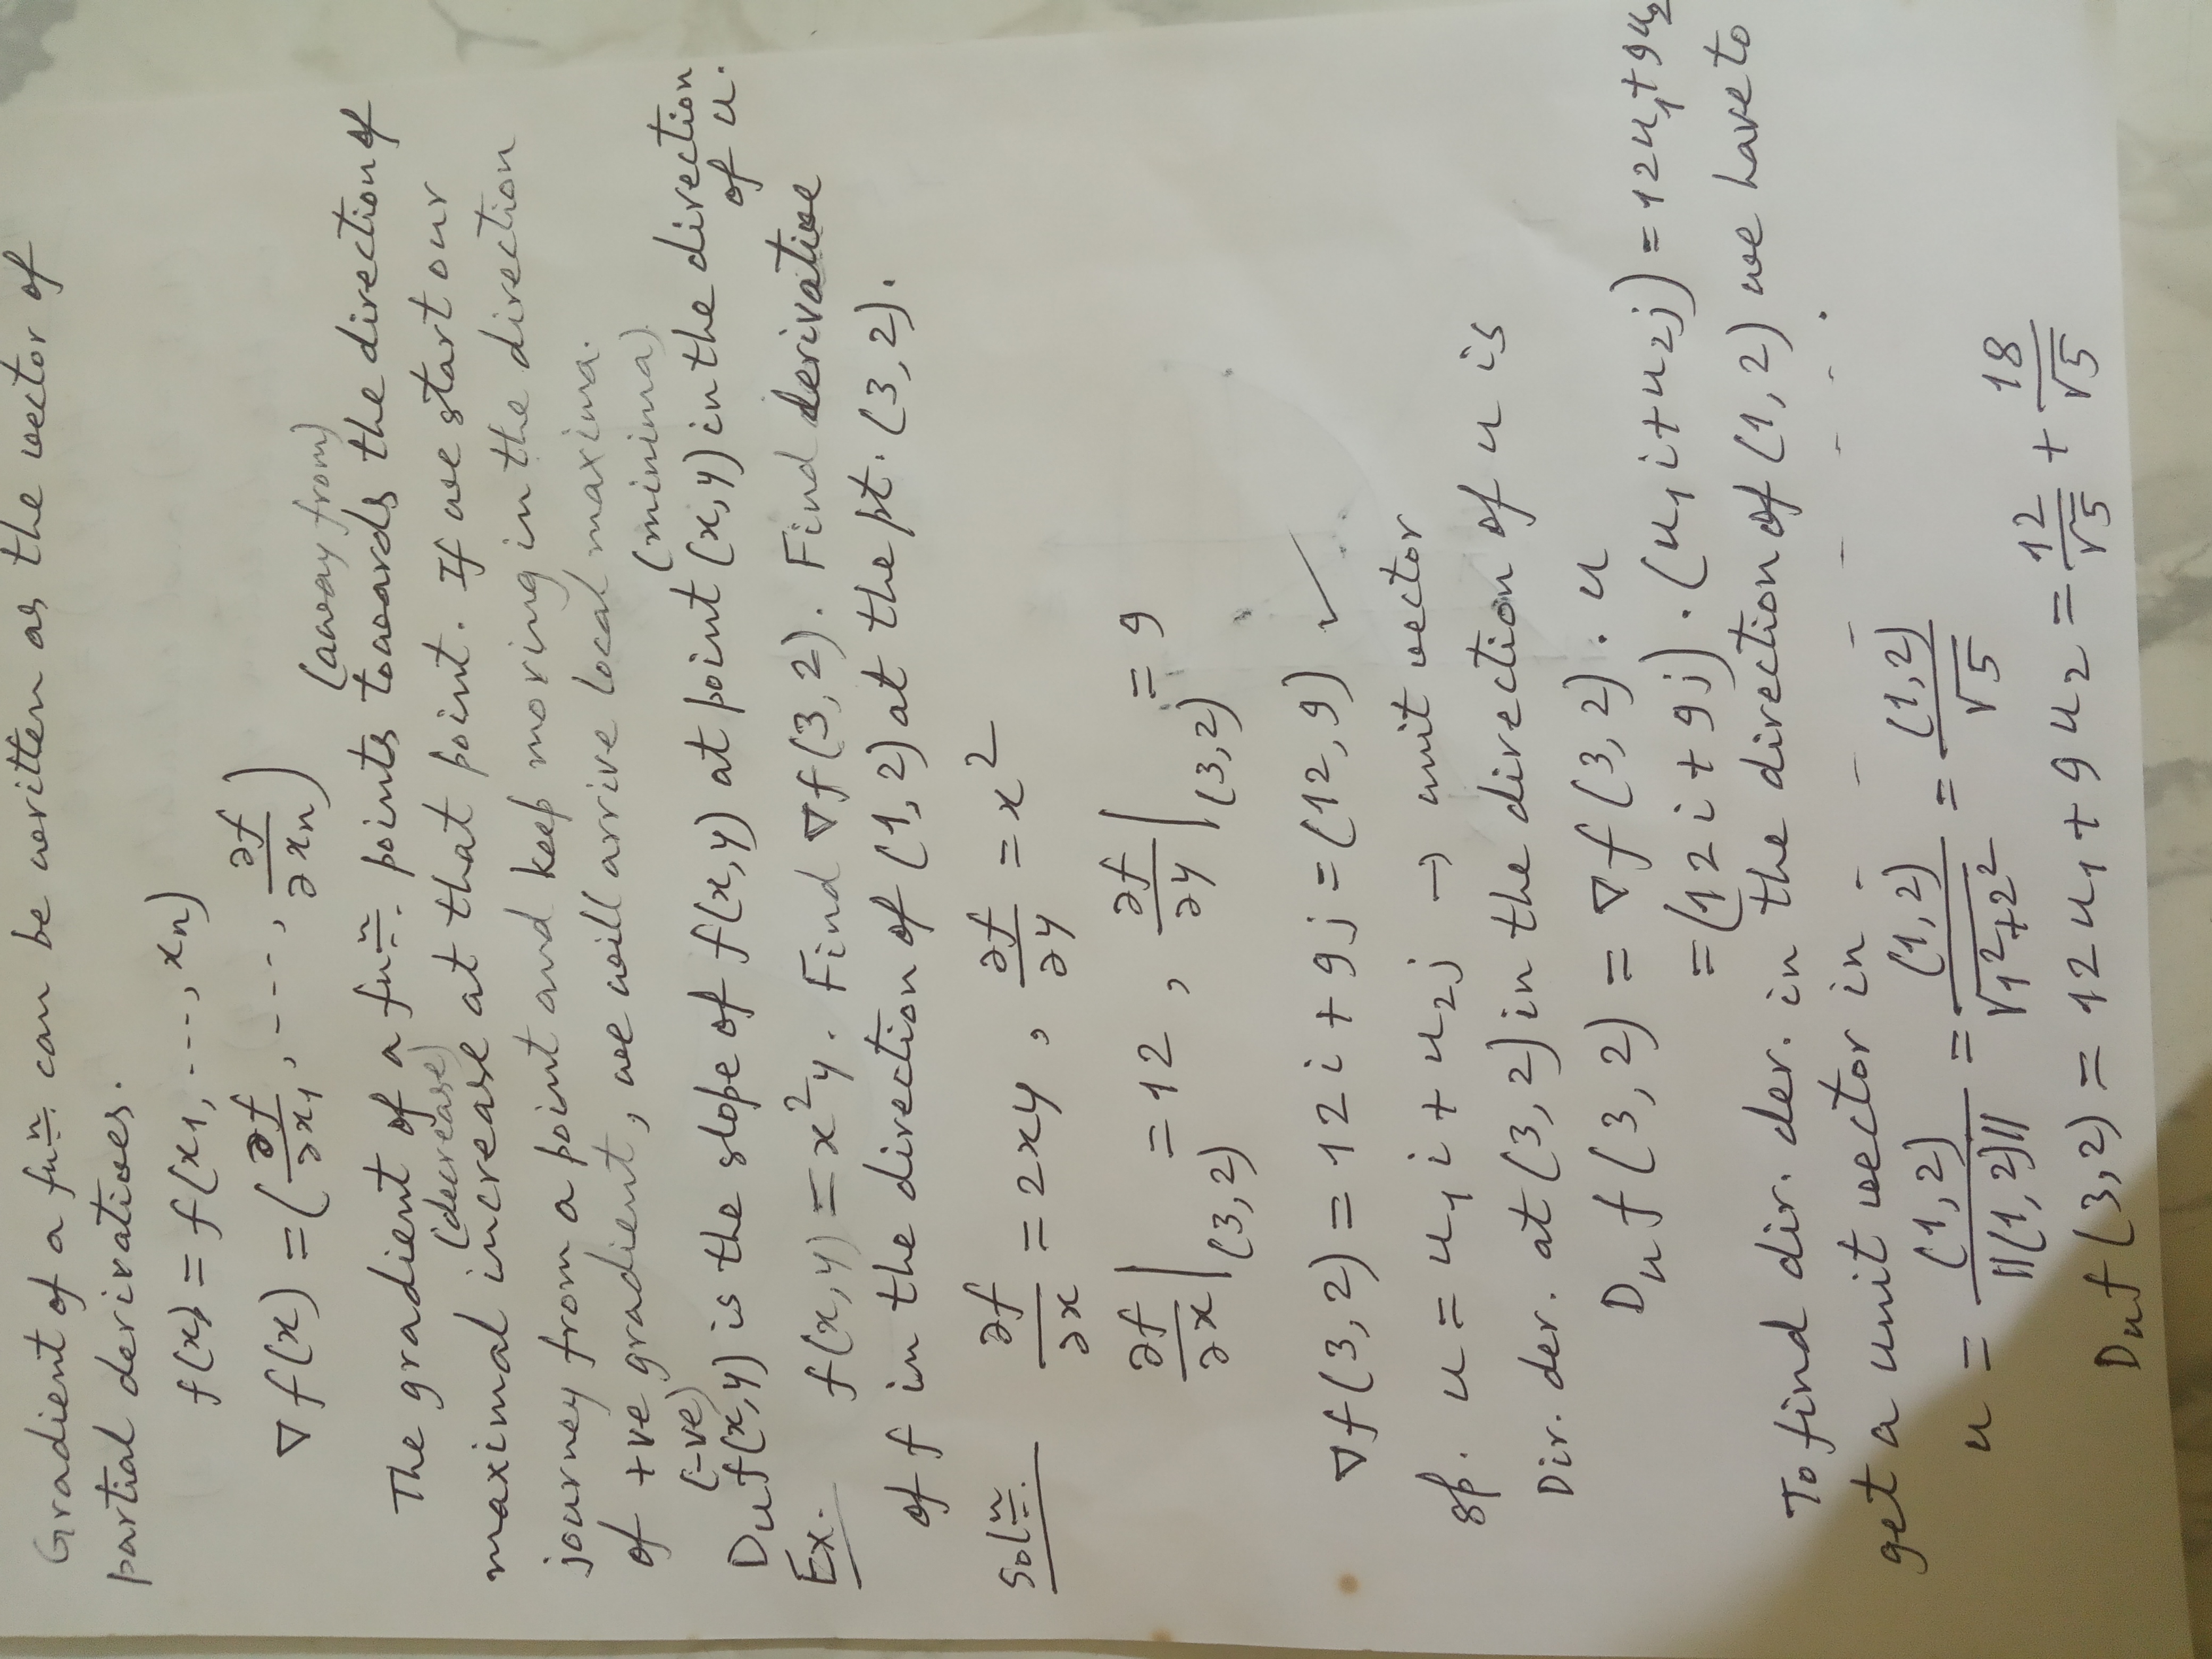 Gradient of a fun. can be written as the vector of
partial derivatives.
f(x) = f(x1, ---, xn)
∇f(x) = (∂f/∂x1, ---, ∂f/∂xn)
(away from)
The gradient of a fun. points towards the direction of
(decrease)
maximal increase at that point. If we start our
journey from a point and keep moving in the direction
of +ve gradient, we will arrive local maxima.
(-ve) (minima)
Duf(x,y) is the slope of f(x,y) at point (x,y) in the direction of u.
Ex. f(x,y) = x²y. Find ∇f(3,2). Find derivative
of f in the direction of (1,2) at the pt. (3,2).
Soln. ∂f/∂x = 2xy, ∂f/∂y = x²
∂f/∂x|(3,2) = 12, ∂f/∂y|(3,2) = 9
∇f(3,2) = 12i + 9j = (12,9) ✓
sp. u = u1i + u2j → unit vector
Dir. der. at (3,2) in the direction of u is
Duf(3,2) = ∇f(3,2).u
= (12i + 9j).(u1i + u2j) = 12u1 + 9u2
To find dir. der. in the direction of (1,2) we have to
get a unit vector in - - - - - - .
u = (1,2)/||(1,2)|| = (1,2)/√1²+2² = (1,2)/√5
Duf(3,2) = 12u1 + 9u2 = 12/√5 + 18/√5